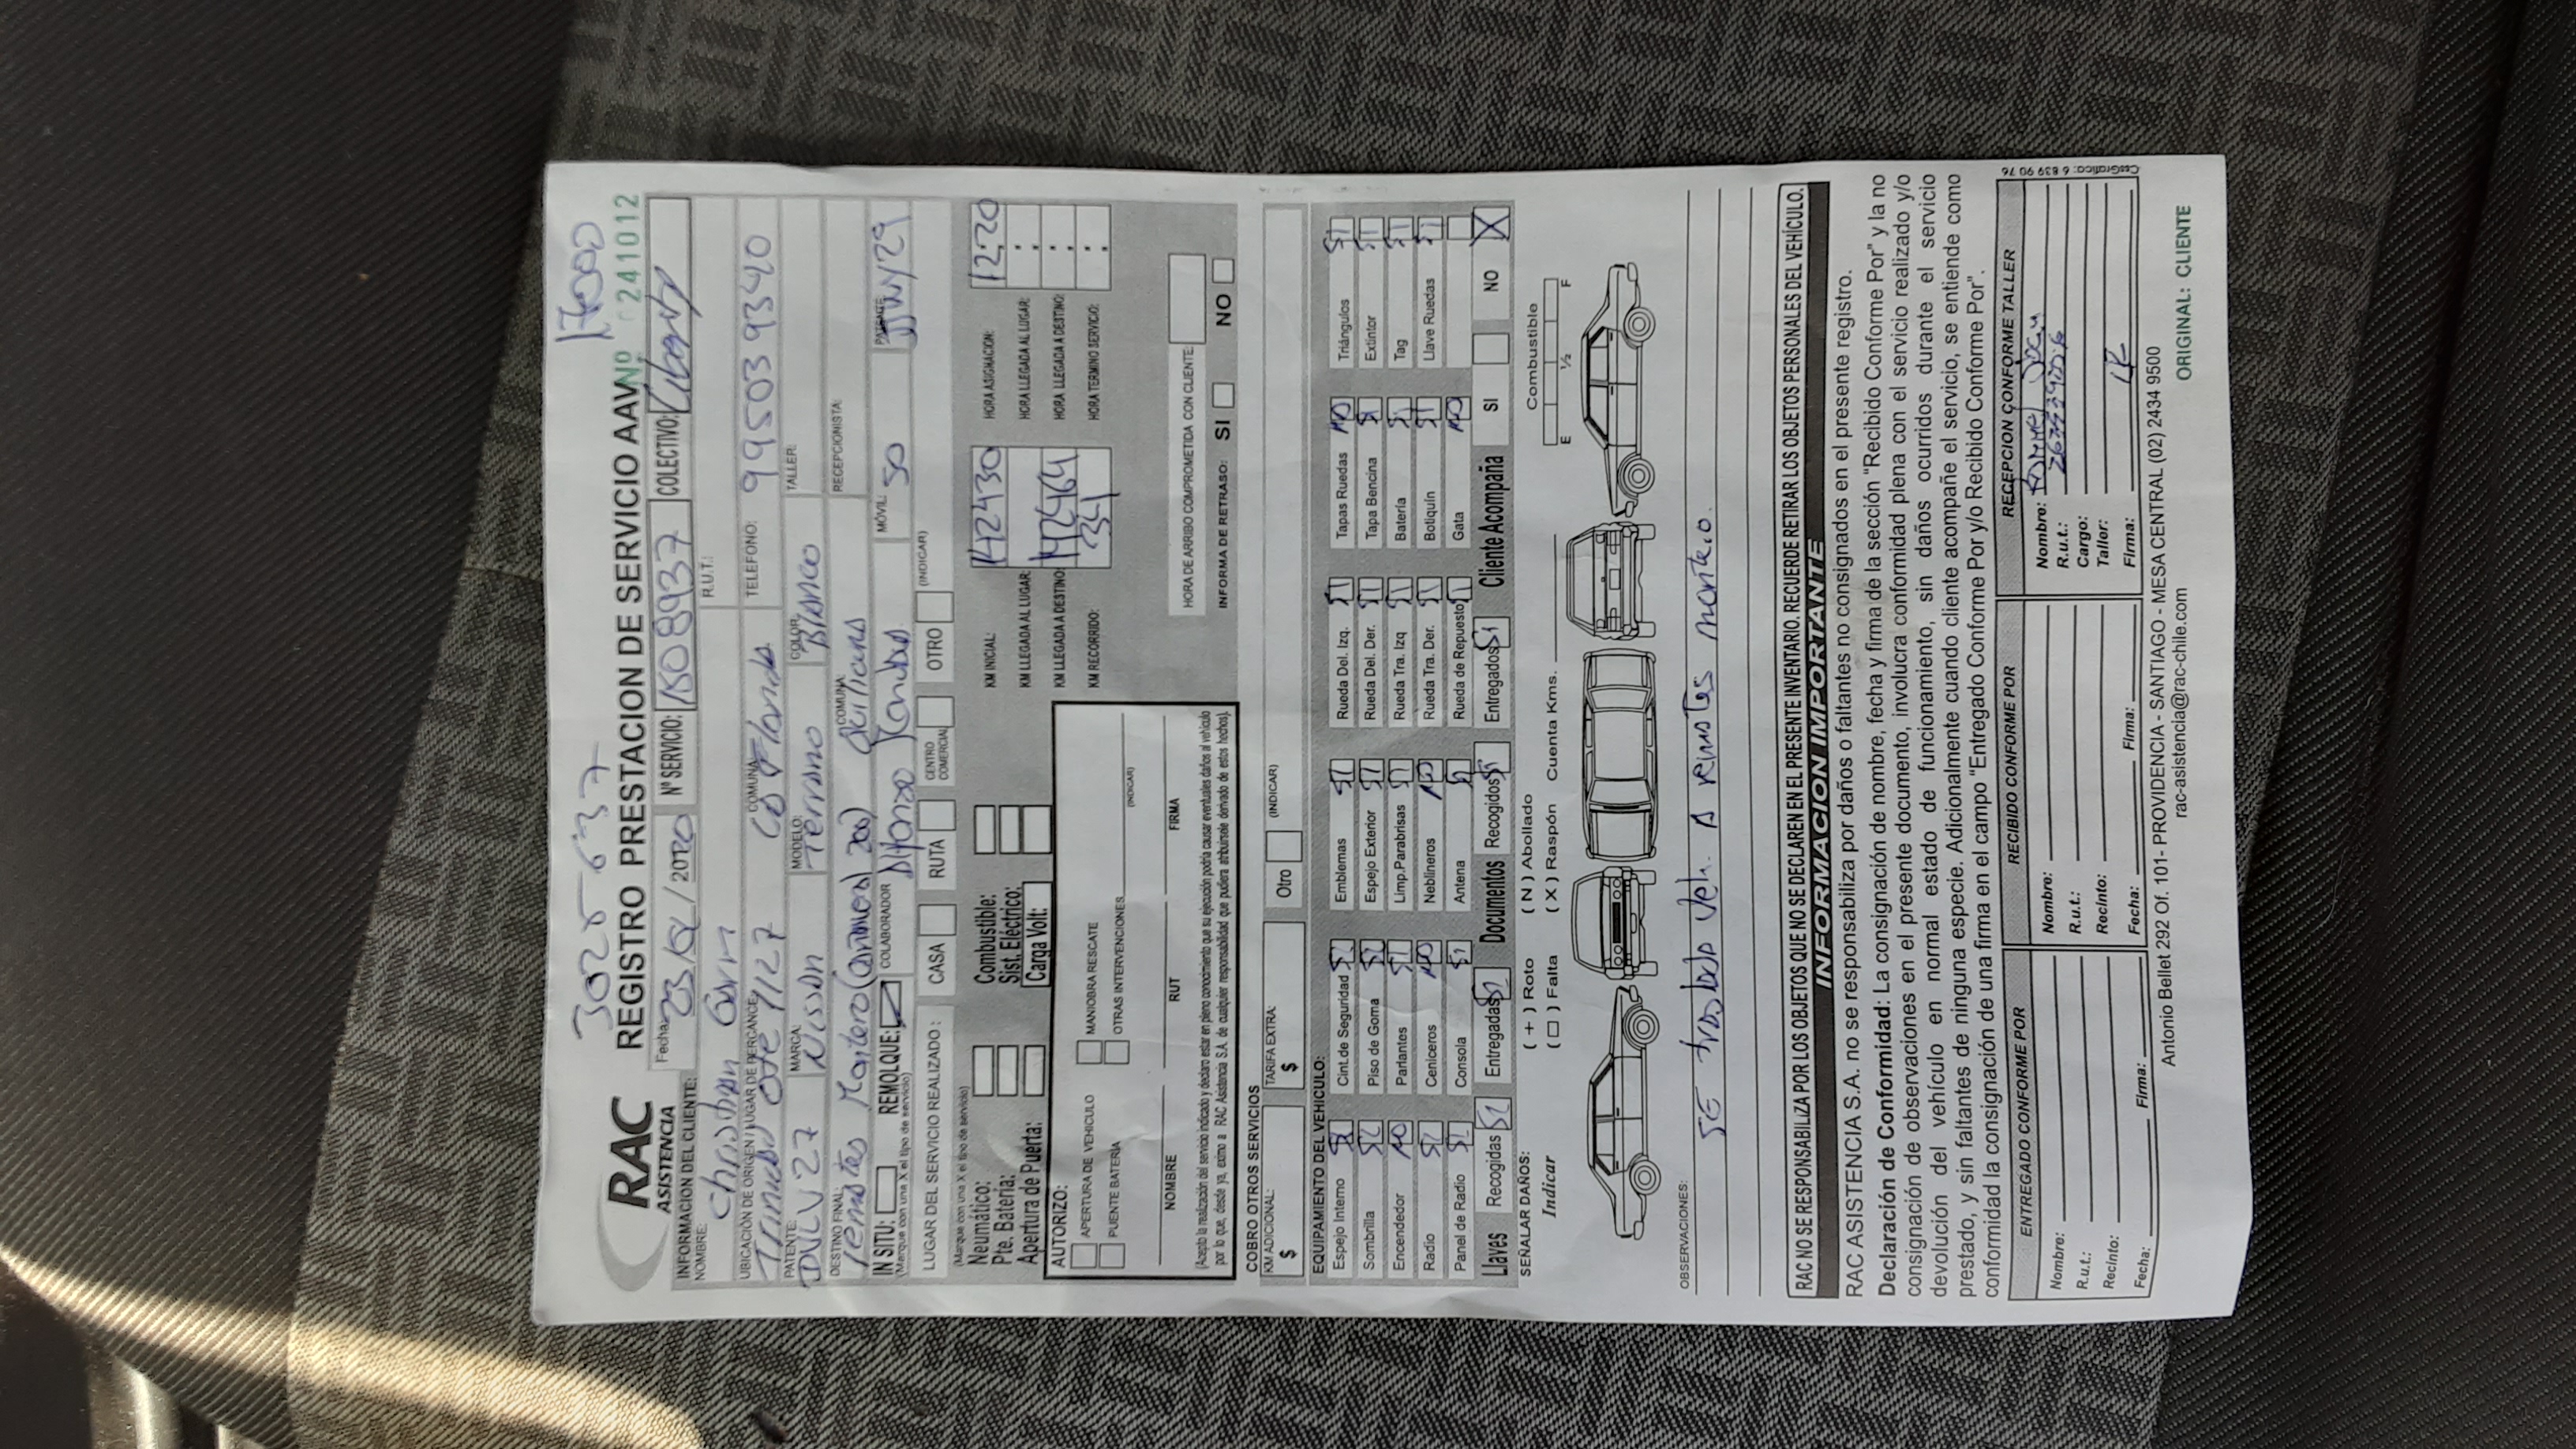 3025637
17000
RAC
ASISTENCIA
REGISTRO PRESTACION DE SERVICIO AAV Nº 241012
INFORMACION DEL CLIENTE:
Fecha: 23/12/2020 Nº SERVICIO: 1808937 COLECTIVO: Liberty
NOMBRE: Christian R.U.T.:
UBICACIÓN DE ORIGEN / LUGAR DE PERCANCE: Trinidad Ote 9127 COMUNA: La Florida TELEFONO: 995039340
PATENTE: DVLV 27 MARCA: Nissan MODELO: Terrano COLOR: Blanco TALLER:
DESTINO FINAL: Remates Montero (Caramera) 200) COMUNA: Quilicura RECEPCIONISTA:
IN SITU: REMOLQUE: COLABORADOR Alfonso MÓVIL: 50 PATENTE
(Marque con una X el tipo de servicio)
LUGAR DEL SERVICIO REALIZADO: CASA RUTA CENTRO COMERCIAL OTRO (INDICAR)
(Marque con una X el tipo de servicio)
Neumático: Combustible:
Pte. Bateria: Sist. Eléctrico:
Apertura de Puerta: Carga Volt:
KM INICIAL: 142430 HORA ASIGNACION: 12:20
KM LLEGADA AL LUGAR: HORA LLEGADA AL LUGAR:
KM LLEGADA A DESTINO: 142464 HORA LLEGADA A DESTINO:
KM RECORRIDO: 341 HORA TERMINO SERVICIO:
AUTORIZO:
APERTURA DE VEHICULO MANIOBRA RESCATE
PUENTE BATERIA OTRAS INTERVENCIONES (INDICAR)
NOMBRE RUT FIRMA
(Acepto la realización del servicio indicado y declaro estar en pleno conocimiento que su ejecución podría causar eventuales daños al vehículo
por lo que, desde ya, eximo a RAC Asistencia S.A. de cualquier responsabilidad que pudiera atribuírsele derivado de estos hechos).
HORA DE ARRIBO COMPROMETIDA CON CLIENTE:
INFORMA DE RETRASO: SI NO
COBRO OTROS SERVICIOS
KM ADICIONAL: $ TARIFA EXTRA: $ Otro (INDICAR)
EQUIPAMIENTO DEL VEHICULO:
Espejo Interno SI Cint.de Seguridad SI Emblemas SI Rueda Del. Izq. SI Tapas Ruedas NO Triángulos SI
Sombrilla SI Piso de Goma SI Espejo Exterior SI Rueda Del. Der. SI Tapa Bencina SI Extintor SI
Encendedor NO Parlantes SI Limp.Parabrisas SI Rueda Tra. Izq SI Batería SI Tag SI
Radio SI Ceniceros NO Neblineros NO Rueda Tra. Der. SI Botiquín SI Llave Ruedas SI
Panel de Radio SI Consola SI Antena SI Rueda de Repuesto SI Gata NO
Llaves Recogidas SI Entregadas SI Documentos Recogidos SI Entregados SI Cliente Acompaña SI NO X
SEÑALAR DAÑOS:
Indicar ( + ) Roto ( N ) Abollado
( □ ) Falta ( X ) Raspón Cuenta Kms.
Combustible
E ½ F
OBSERVACIONES:
SE traslada Veh. A remates monte.o.
RAC NO SE RESPONSABILIZA POR LOS OBJETOS QUE NO SE DECLAREN EN EL PRESENTE INVENTARIO. RECUERDE RETIRAR LOS OBJETOS PERSONALES DEL VEHÍCULO.
INFORMACION IMPORTANTE
RAC ASISTENCIA S.A. no se responsabiliza por daños o faltantes no consignados en el presente registro.
Declaración de Conformidad: La consignación de nombre, fecha y firma de la sección "Recibido Conforme Por" y la no
consignación de observaciones en el presente documento, involucra conformidad plena con el servicio realizado y/o
devolución del vehículo en normal estado de funcionamiento, sin daños ocurridos durante el servicio
prestado, y sin faltantes de ninguna especie. Adicionalmente cuando cliente acompañe el servicio, se entiende como
conformidad la consignación de una firma en el campo "Entregado Conforme Por y/o Recibido Conforme Por".
ENTREGADO CONFORME POR
Nombre:
R.u.t.:
Recinto:
Fecha: Firma:
RECIBIDO CONFORME POR
Nombre:
R.u.t.:
Recinto:
Fecha: Firma:
RECEPCION CONFORME TALLER
Nombre:
R.u.t.:
Cargo:
Taller:
Firma:
Antonio Bellet 292 Of. 101- PROVIDENCIA - SANTIAGO - MESA CENTRAL (02) 2434 9500
rac-asistencia@rac-chile.com
ORIGINAL: CLIENTE
CssGrafico: 6 839 90 76